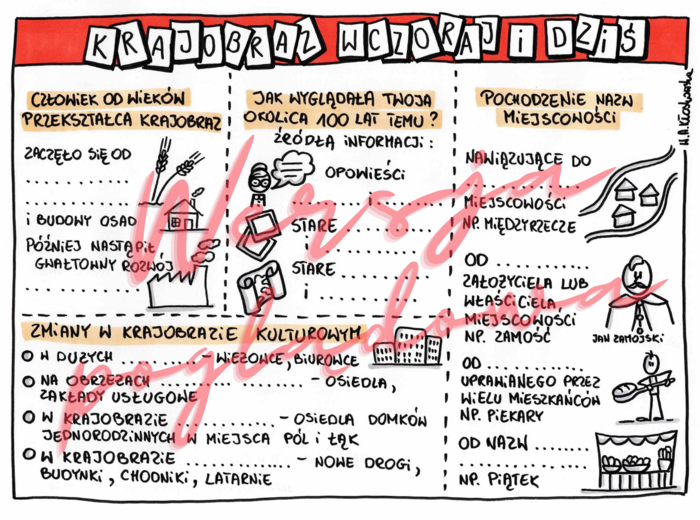 KRAJOBRAZ WCZORAJ I DZIŚ
CZŁOWIEK OD WIEKÓW
PRZEKSZTAŁCA KRAJOBRAZ
ZACZĘŁO SIĘ OD
. . . . . . . . . . . . .
. . . . . . . . . . . . .
I BUDOWY OSAD
PÓŹNIEJ NASTĄPIŁ
GWAŁTOWNY ROZWÓJ
. . . . . . . . . . . . .
JAK WYGLĄDAŁA TWOJA
OKOLICA 100 LAT TEMU?
ŹRÓDŁA INFORMACJI:
OPOWIEŚCI
. . . . . . I . . . . . . .
STARE . . . . . . . .
I . . . . . . . . . .
STARE . . . . . . . .
I . . . . . . . . . .
POCHODZENIE NAZW
MIEJSCOWOŚCI
NAWIĄZUJĄCE DO
. . . . . . . . . . . . .
MIEJSCOWOŚCI
NP. MIĘDZYRZECZE
OD . . . . . . . . .
ZAŁOŻYCIELA LUB
WŁAŚCICIELA
MIEJSCOWOŚCI
NP. ZAMOŚĆ
JAN ZAMOJSKI
OD . . . . . . . . . . .
UPRAWIANEGO PRZEZ
WIELU MIESZKAŃCÓW
NP. PIEKARY
OD NAZW . . . . . . .
. . . . . . . . . . . . .
NP. PIĄTEK
ZMIANY W KRAJOBRAZIE KULTUROWYM
W DUŻYCH . . . . . . . . . . – WIEŻOWCE, BIUROWCE
NA OBRZEŻACH . . . . . . . . . . . . . . . . . . – OSIEDLA,
ZAKŁADY USŁUGOWE
W KRAJOBRAZIE . . . . . . . . . . . . . . – OSIEDLA DOMKÓW
JEDNORODZINNYCH W MIEJSCA PÓL I ŁĄK
W KRAJOBRAZIE . . . . . . . . . . . . . . – NOWE DROGI,
BUDYNKI, CHODNIKI, LATARNIE
Wersja
poglądowa